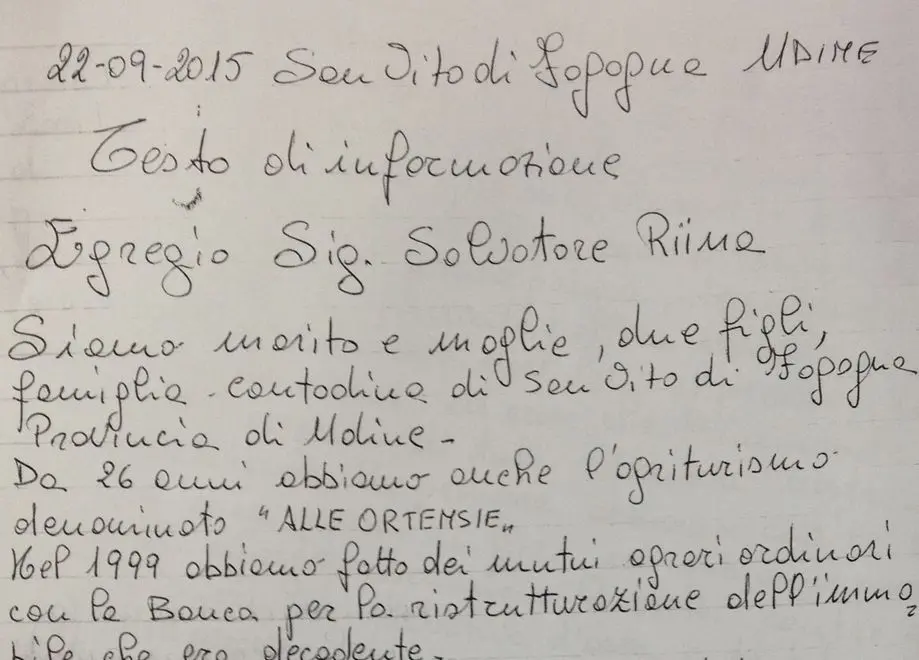 22-09-2015 San Vito di Fagagna UDINE
Testo di informazione
Egregio Sig. Salvatore Riina
Siamo marito e moglie, due figli,
famiglia contadina di San Vito di Fagagna
Provincia di Udine -
Da 26 anni abbiamo anche l'agriturismo
denominato "ALLE ORTENSIE"
Nel 1999 abbiamo fatto dei mutui agrari ordinari
con la Banca per la ristrutturazione dell'immo
bile che era decadente.